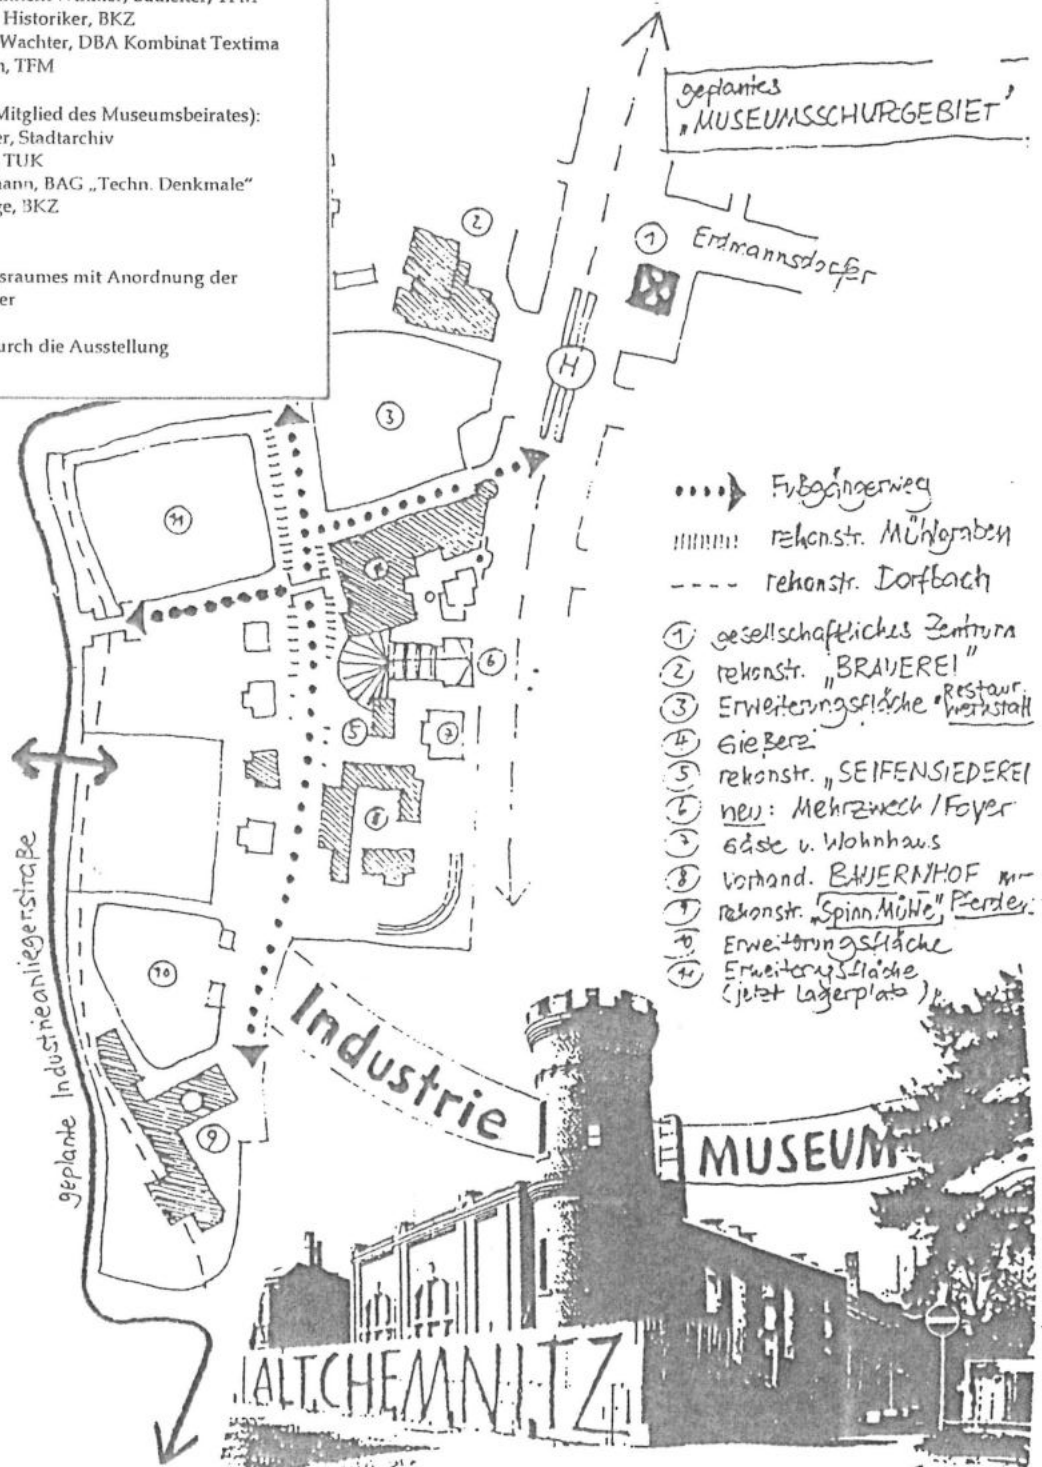 Historiker, BKZ
Wachter, DBA Kombinat Textima
TFM
Mitglied des Museumsbeirates):
Stadtarchiv
TUK
BAG „Techn. Denkmale“
BKZ
mit Anordnung der
durch die Ausstellung
geplantes
„MUSEUMSSCHUTZGEBIET“
Erdmannsdorfer
1
2
H
3
11
4
6
5
7
8
10
9
Fußgängerweg
rekonstr. Mühlgraben
rekonstr. Dorfbach
1 gesellschaftliches Zentrum
2 rekonstr. „BRAUEREI“
3 Erweiterungsfläche Restaur. Werkstatt
4 Gießerei
5 rekonstr. „SEIFENSIEDEREI
6 neu: Mehrzweck / Foyer
7 Gäste u. Wohnhaus
8 vorhand. BAUERNHOF
9 rekonstr. „Spinn.Mühle“ Pferde
10 Erweiterungsfläche
11 Erweiterungsfläche
(jetzt Lagerplatz)
geplante Industrieanliegerstraße
Industrie
MUSEUM
ALTCHEMNITZ